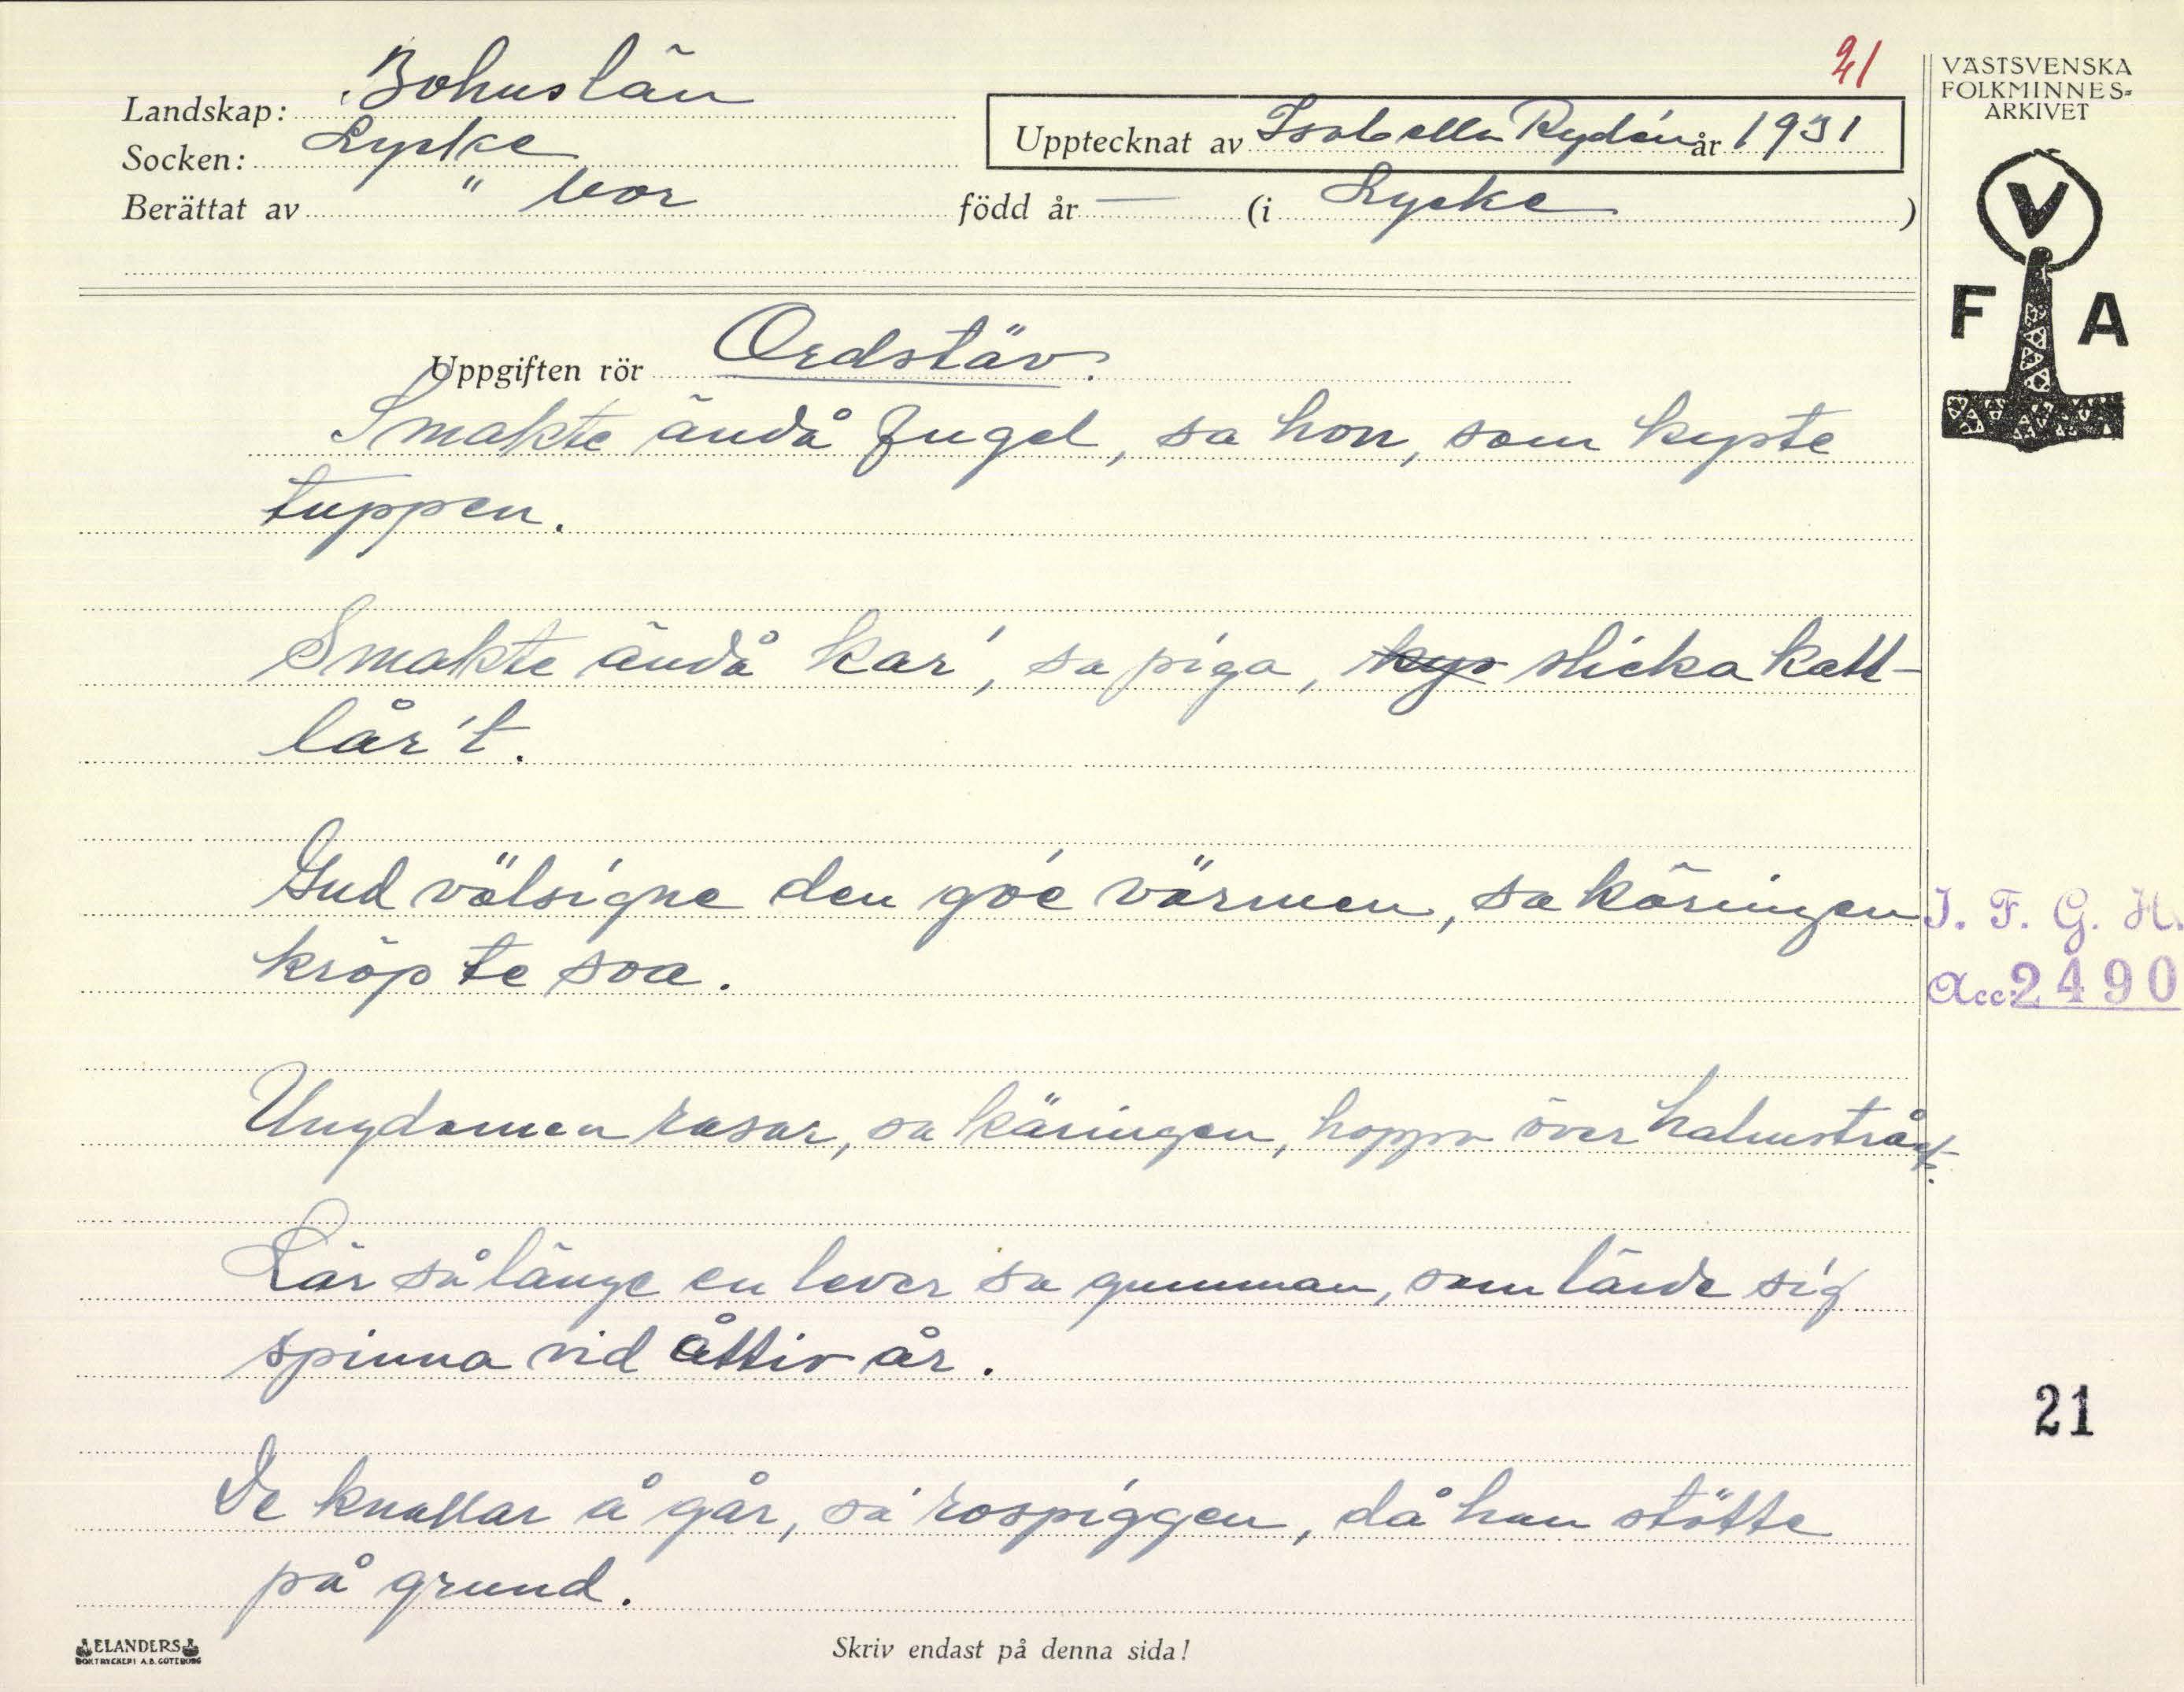 21
Landskap: Bohuslän
Socken: Lycke
Upptecknat av Isabella Rydén år 1931
Berättat av " bor född år — (i Lycke )
VÄSTSVENSKA
FOLKMINNES-
ARKIVET
V
F A
Uppgiften rör Ordstäv.
Smakte ändå fugel, sa hon, som kyste
tuppen.
Smakte ändå kar', sa piga, kys slicka katt-
lår't.
Gud välsigne den goé värmen, sa käringen
kröp te soa.
I. F. G. H.
Acc. 2490
Ungdomen rasar, sa käringen, hoppa över halmstrået.
Lär så länge en lever sa gumman, som lärde sig
spinna vid åttio år.
21
De knallar å går, sa' rospiggen, då han stötte
på grund.
ELANDERS
BOKTRYCKERI A.B. GÖTEBORG
Skriv endast på denna sida!